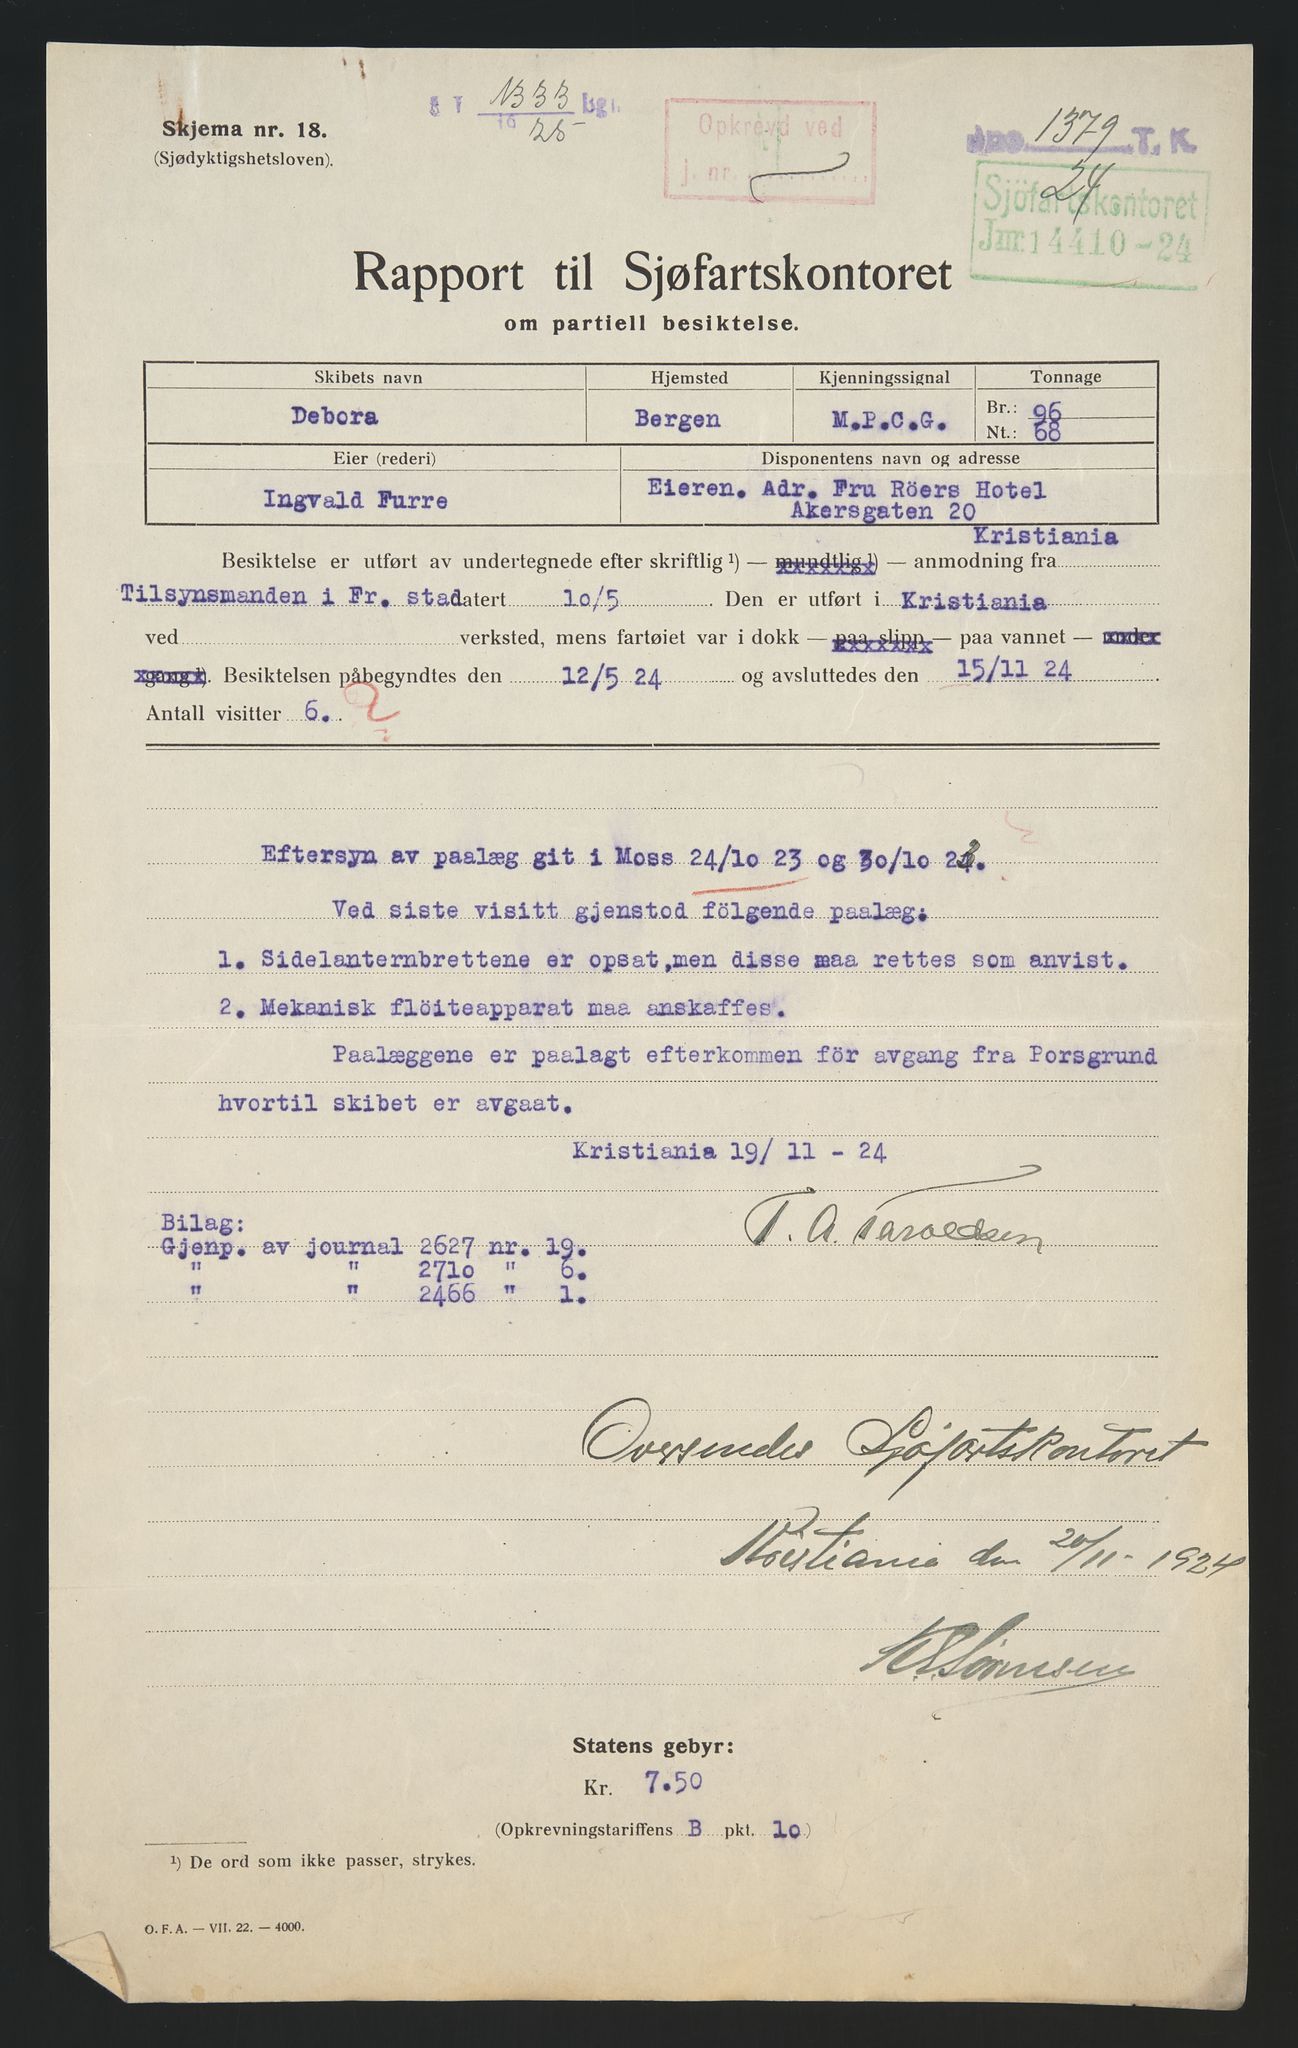 Skjema nr. 18.
(Sjødyktigshetsloven).
1333 bgn.
19 25
Opkrevd ved
j. nr.
Jno. 1379 T. K.
24
Sjöfartskontoret
Jnr. 14410 - 24
Rapport til Sjøfartskontoret
om partiell besiktelse.
Skibets navn Hjemsted Kjenningssignal Tonnage
Debora Bergen M.P.C.G. Br.: 96
Nt.: 68
Eier (rederi) Disponentens navn og adresse
Ingvald Furre Eieren. Adr. Fru Röers Hotel
Akersgaten 20
Kristiania
Besiktelse er utført av undertegnede efter skriftlig ¹) — mundtlig ¹) — anmodning fra
Tilsynsmanden i Fr. stad datert 10/5 . Den er utført i Kristiania
ved verksted, mens fartøiet var i dokk — paa slipp — paa vannet — under
gang ¹). Besiktelsen påbegyndtes den 12/5 24 og avsluttedes den 15/11 24 .
Antall visitter 6. 2
Eftersyn av paalæg git i Moss 24/10 23 og 30/10 23.
Ved siste visitt gjenstod fölgende paalæg:
1. Sidelanternbrettene er opsat,men disse maa rettes som anvist.
2. Mekanisk flöiteapparat maa anskaffes.
Paalæggene er paalagt efterkommen för avgang fra Porsgrund
hvortil skibet er avgaat.
Kristiania 19/ 11 - 24
T. A. Taroldsen
Bilag:
Gjenp. av journal 2627 nr. 19.
" " 2710 " 6.
" " 2466 " 1.
Oversendes Sjøfartskontoret
Kristiania den 20/11 - 1924
Sørensen
Statens gebyr:
Kr. 7.50
(Opkrevningstariffens B pkt. 10 )
¹) De ord som ikke passer, strykes.
O. F. A. — VII. 22. — 4000.